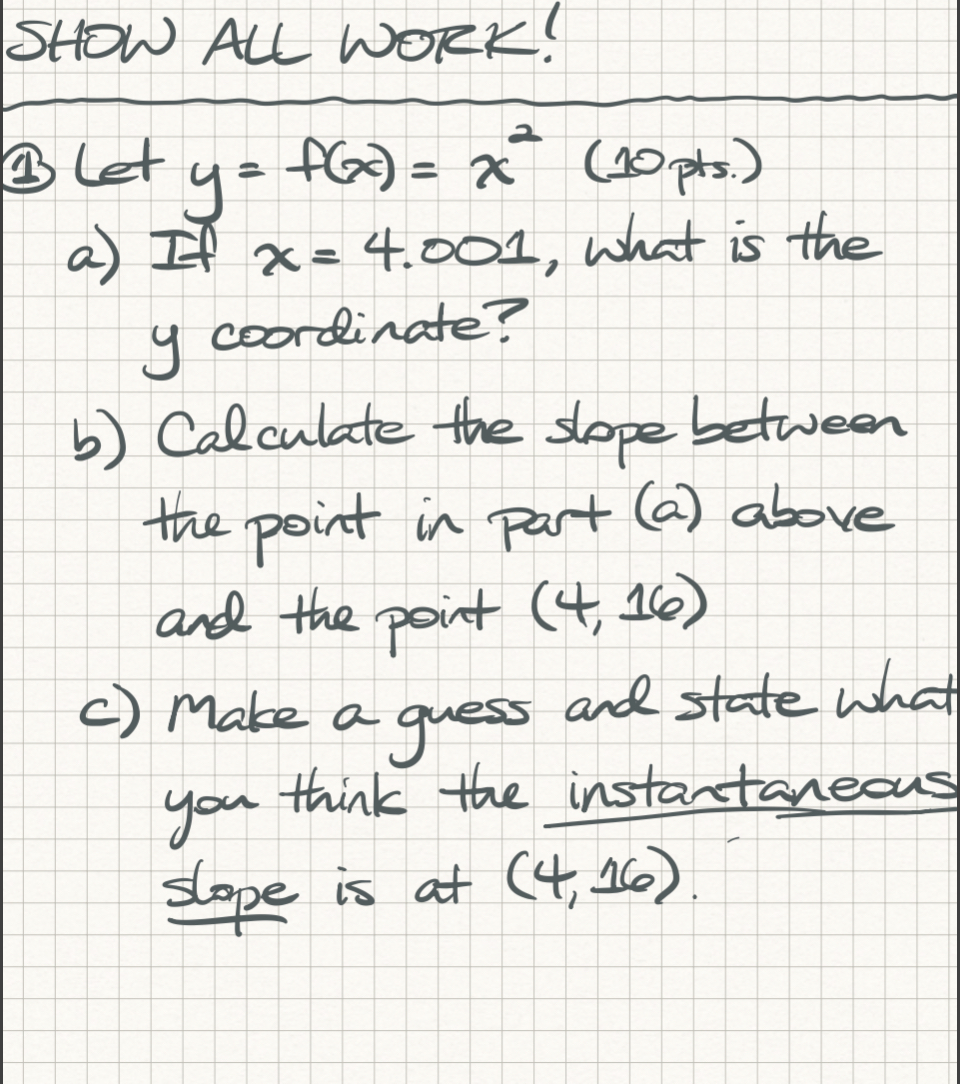 SHOW ALL WORK!
① Let y = f(x) = x² (10 pts.)
a) If x = 4.001, what is the
y coordinate?
b) Calculate the slope between
the point in part (a) above
and the point (4, 16)
c) Make a guess and state what
you think the instantaneous
slope is at (4, 16).